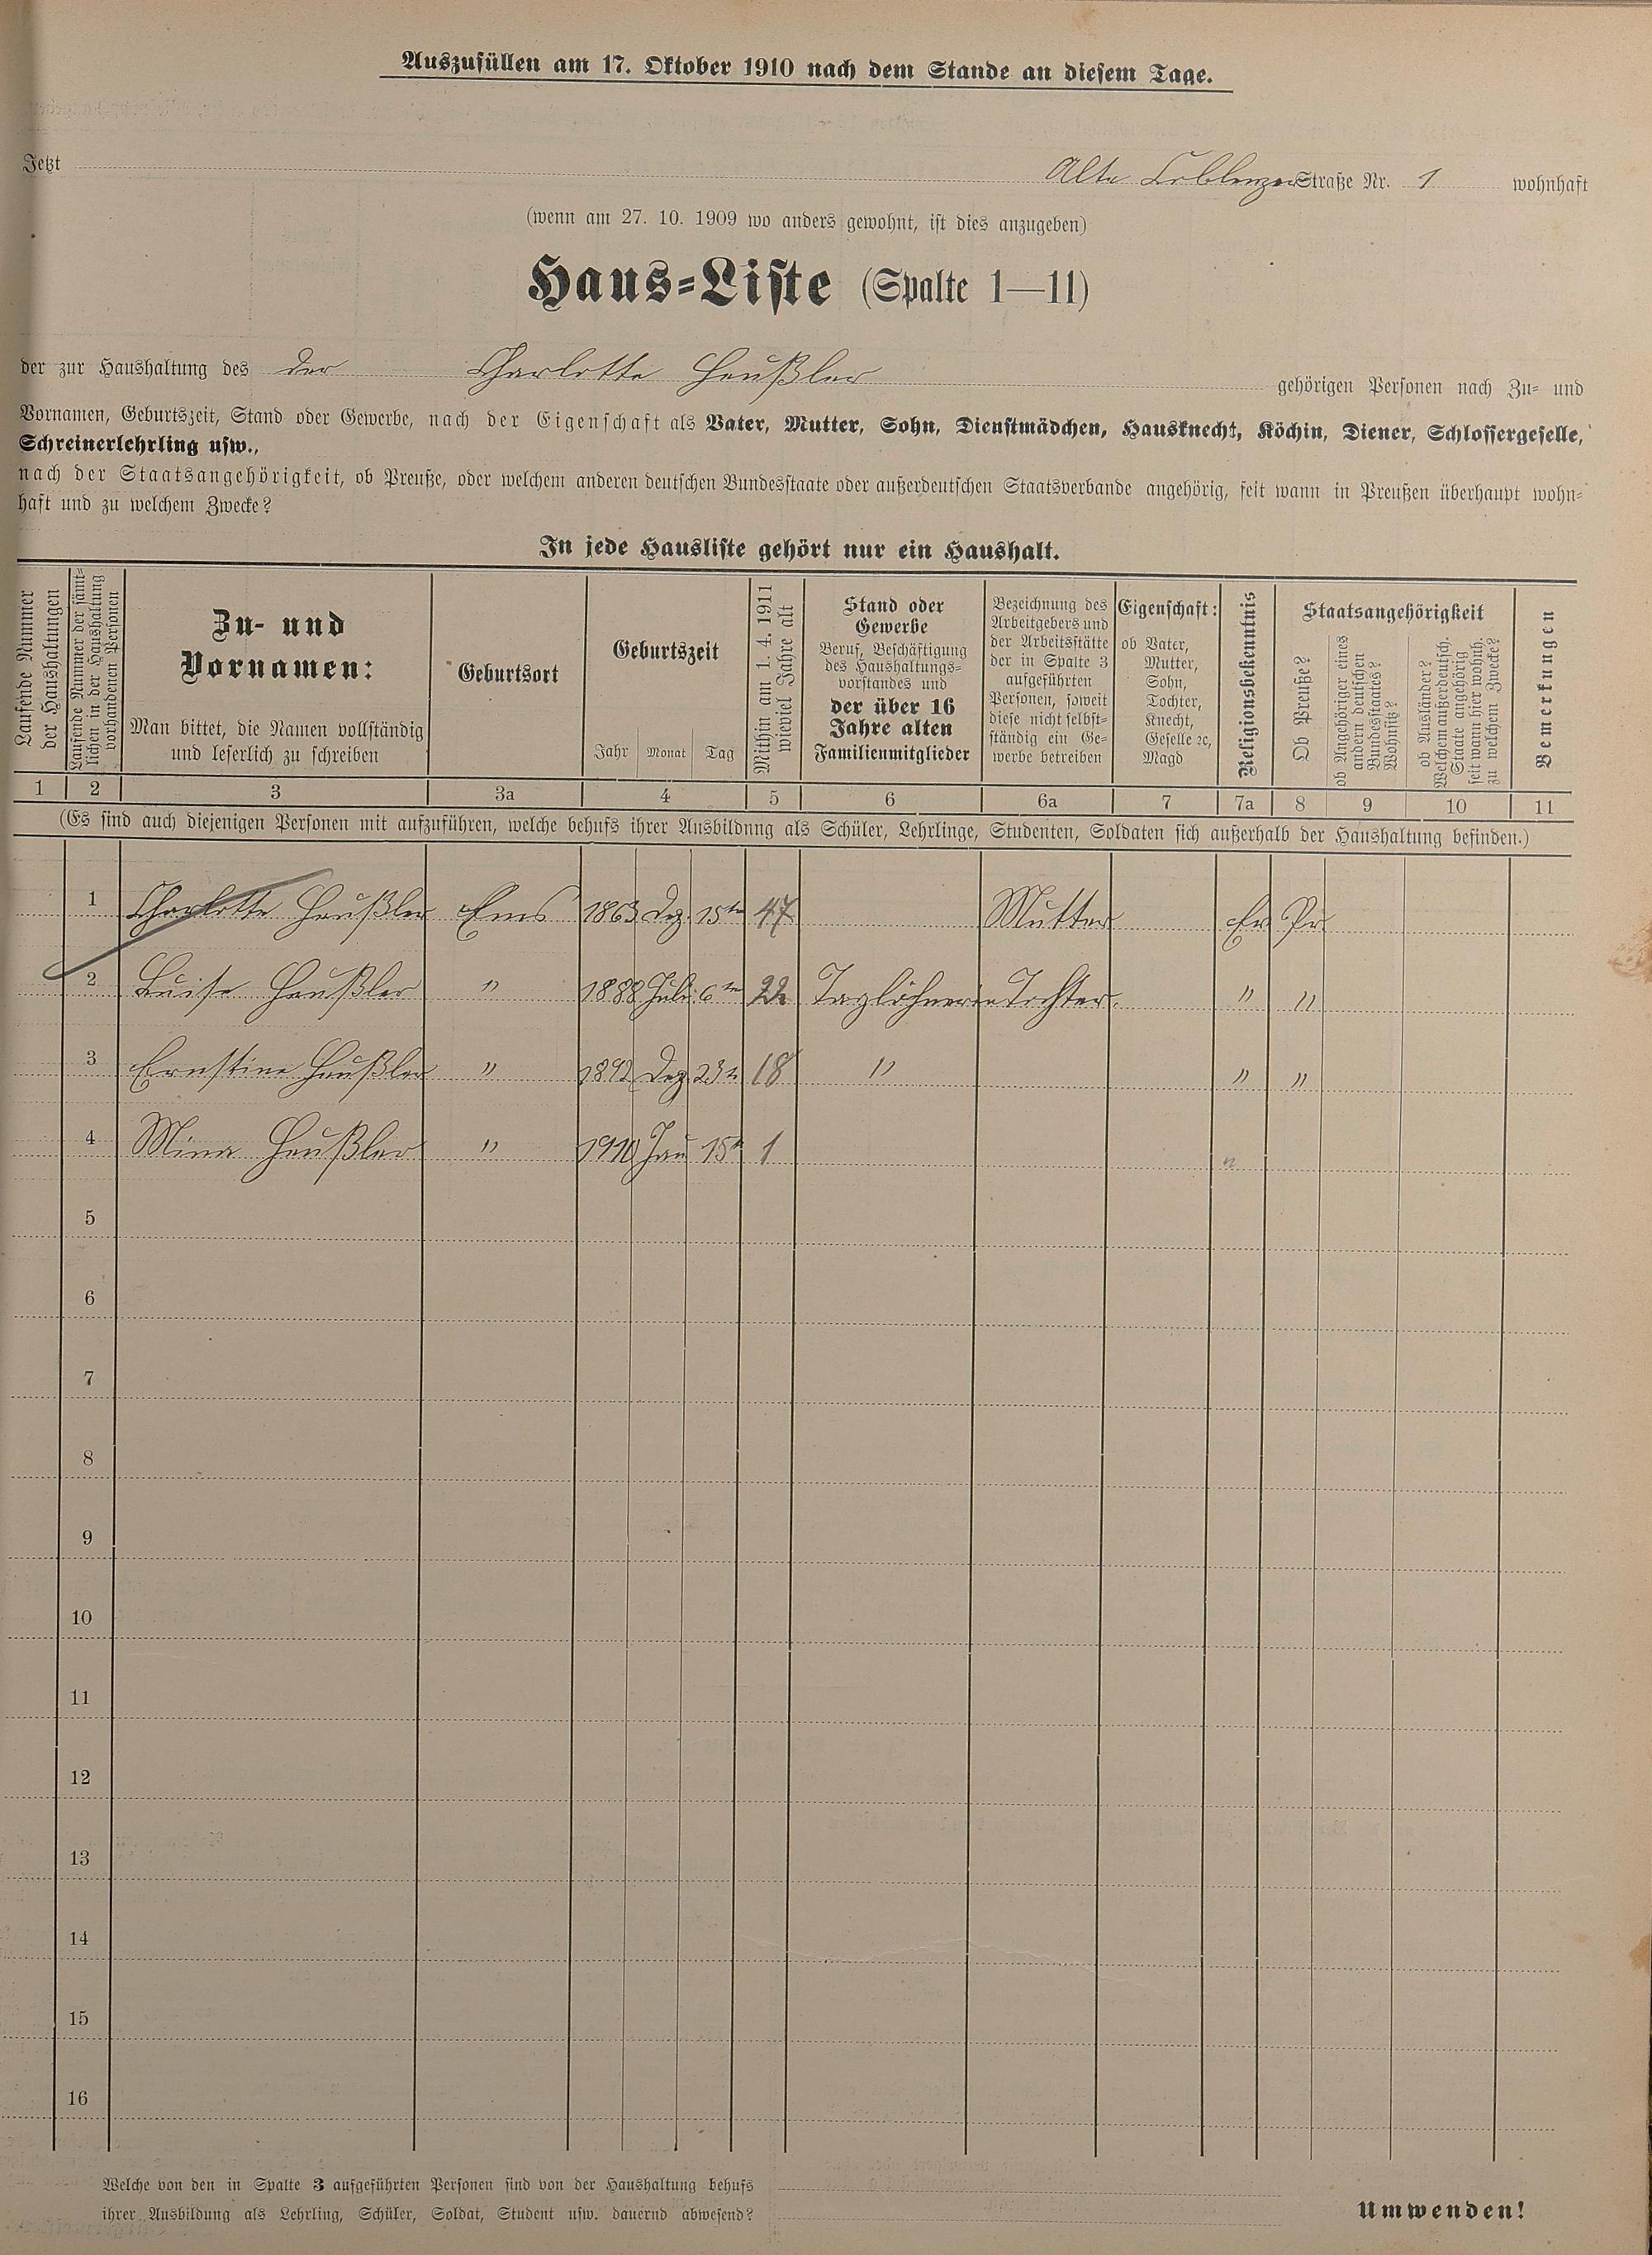 Auszufüllen am 17. Oktober 1910 nach dem Stande an diesem Tage.
Jetzt Alte Coblenzer Straße Nr. 1 wohnhaft
(wenn am 27. 10. 1909 wo anders gewohnt, ist dies anzugeben)
Haus-Liste (Spalte 1—11)
der zur Haushaltung des der Charlotte Heußler gehörigen Personen nach Zu- und
Vornamen, Geburtszeit, Stand oder Gewerbe, nach der Eigenschaft als Vater, Mutter, Sohn, Dienstmädchen, Hausknecht, Köchin, Diener, Schlossergeselle,
Schreinerlehrling usw.,
nach der Staatsangehörigkeit, ob Preuße, oder welchem anderen deutschen Bundesstaate oder außerdeutschen Staatsverbande angehörig, seit wann in Preußen überhaupt wohn-
haft und zu welchem Zwecke?
In jede Hausliste gehört nur ein Haushalt.
Laufende Nummer
der Haushaltungen
Laufende Nummer der sämt-
lichen in der Haushaltung
vorhandenen Personen
Zu- und
Vornamen:
Man bittet, die Namen vollständig
und leserlich zu schreiben
Geburtsort
Geburtszeit
Jahr Monat Tag
Mithin am 1. 4. 1911
wieviel Jahre alt
Stand oder
Gewerbe
Beruf, Beschäftigung
des Haushaltungs-
vorstandes und
der über 16
Jahre alten
Familienmitglieder
Bezeichnung des
Arbeitgebers und
der Arbeitsstätte
der in Spalte 3
aufgeführten
Personen, soweit
diese nicht selbst-
ständig ein Ge-
werbe betreiben
Eigenschaft:
ob Vater,
Mutter,
Sohn,
Tochter,
Knecht,
Geselle ꝛc,
Magd
Religionsbekenntnis
Staatsangehörigkeit
Ob Preuße?
ob Angehöriger eines
andern deutschen
Bundesstaates?
Wohnsitz?
ob Ausländer?
Welchem außerdeutsch.
Staate angehörig
seit wann hier wohnh.
zu welchem Zwecke?
Bemerkungen
1 2 3 3a 4 5 6 6a 7 7a 8 9 10 11
(Es sind auch diejenigen Personen mit aufzuführen, welche behufs ihrer Ausbildung als Schüler, Lehrlinge, Studenten, Soldaten sich außerhalb der Haushaltung befinden.)
1 Charlotte Heußler Ems 1863 Dez. 15ten 47 Mutter Ev Pr.
2 Luise Heußler " 1888 Juli 6ten 22 Taglöhnerin Tochter. " "
3 Ernstine Heußler " 1892 Dez 23t 18 " " "
4 Mina Heußler " 1910 Jan 15t 1 "
5
6
7
8
9
10
11
12
13
14
15
16
Welche von den in Spalte 3 aufgeführten Personen sind von der Haushaltung behufs
ihrer Ausbildung als Lehrling, Schüler, Soldat, Student usw. dauernd abwesend?
Umwenden!